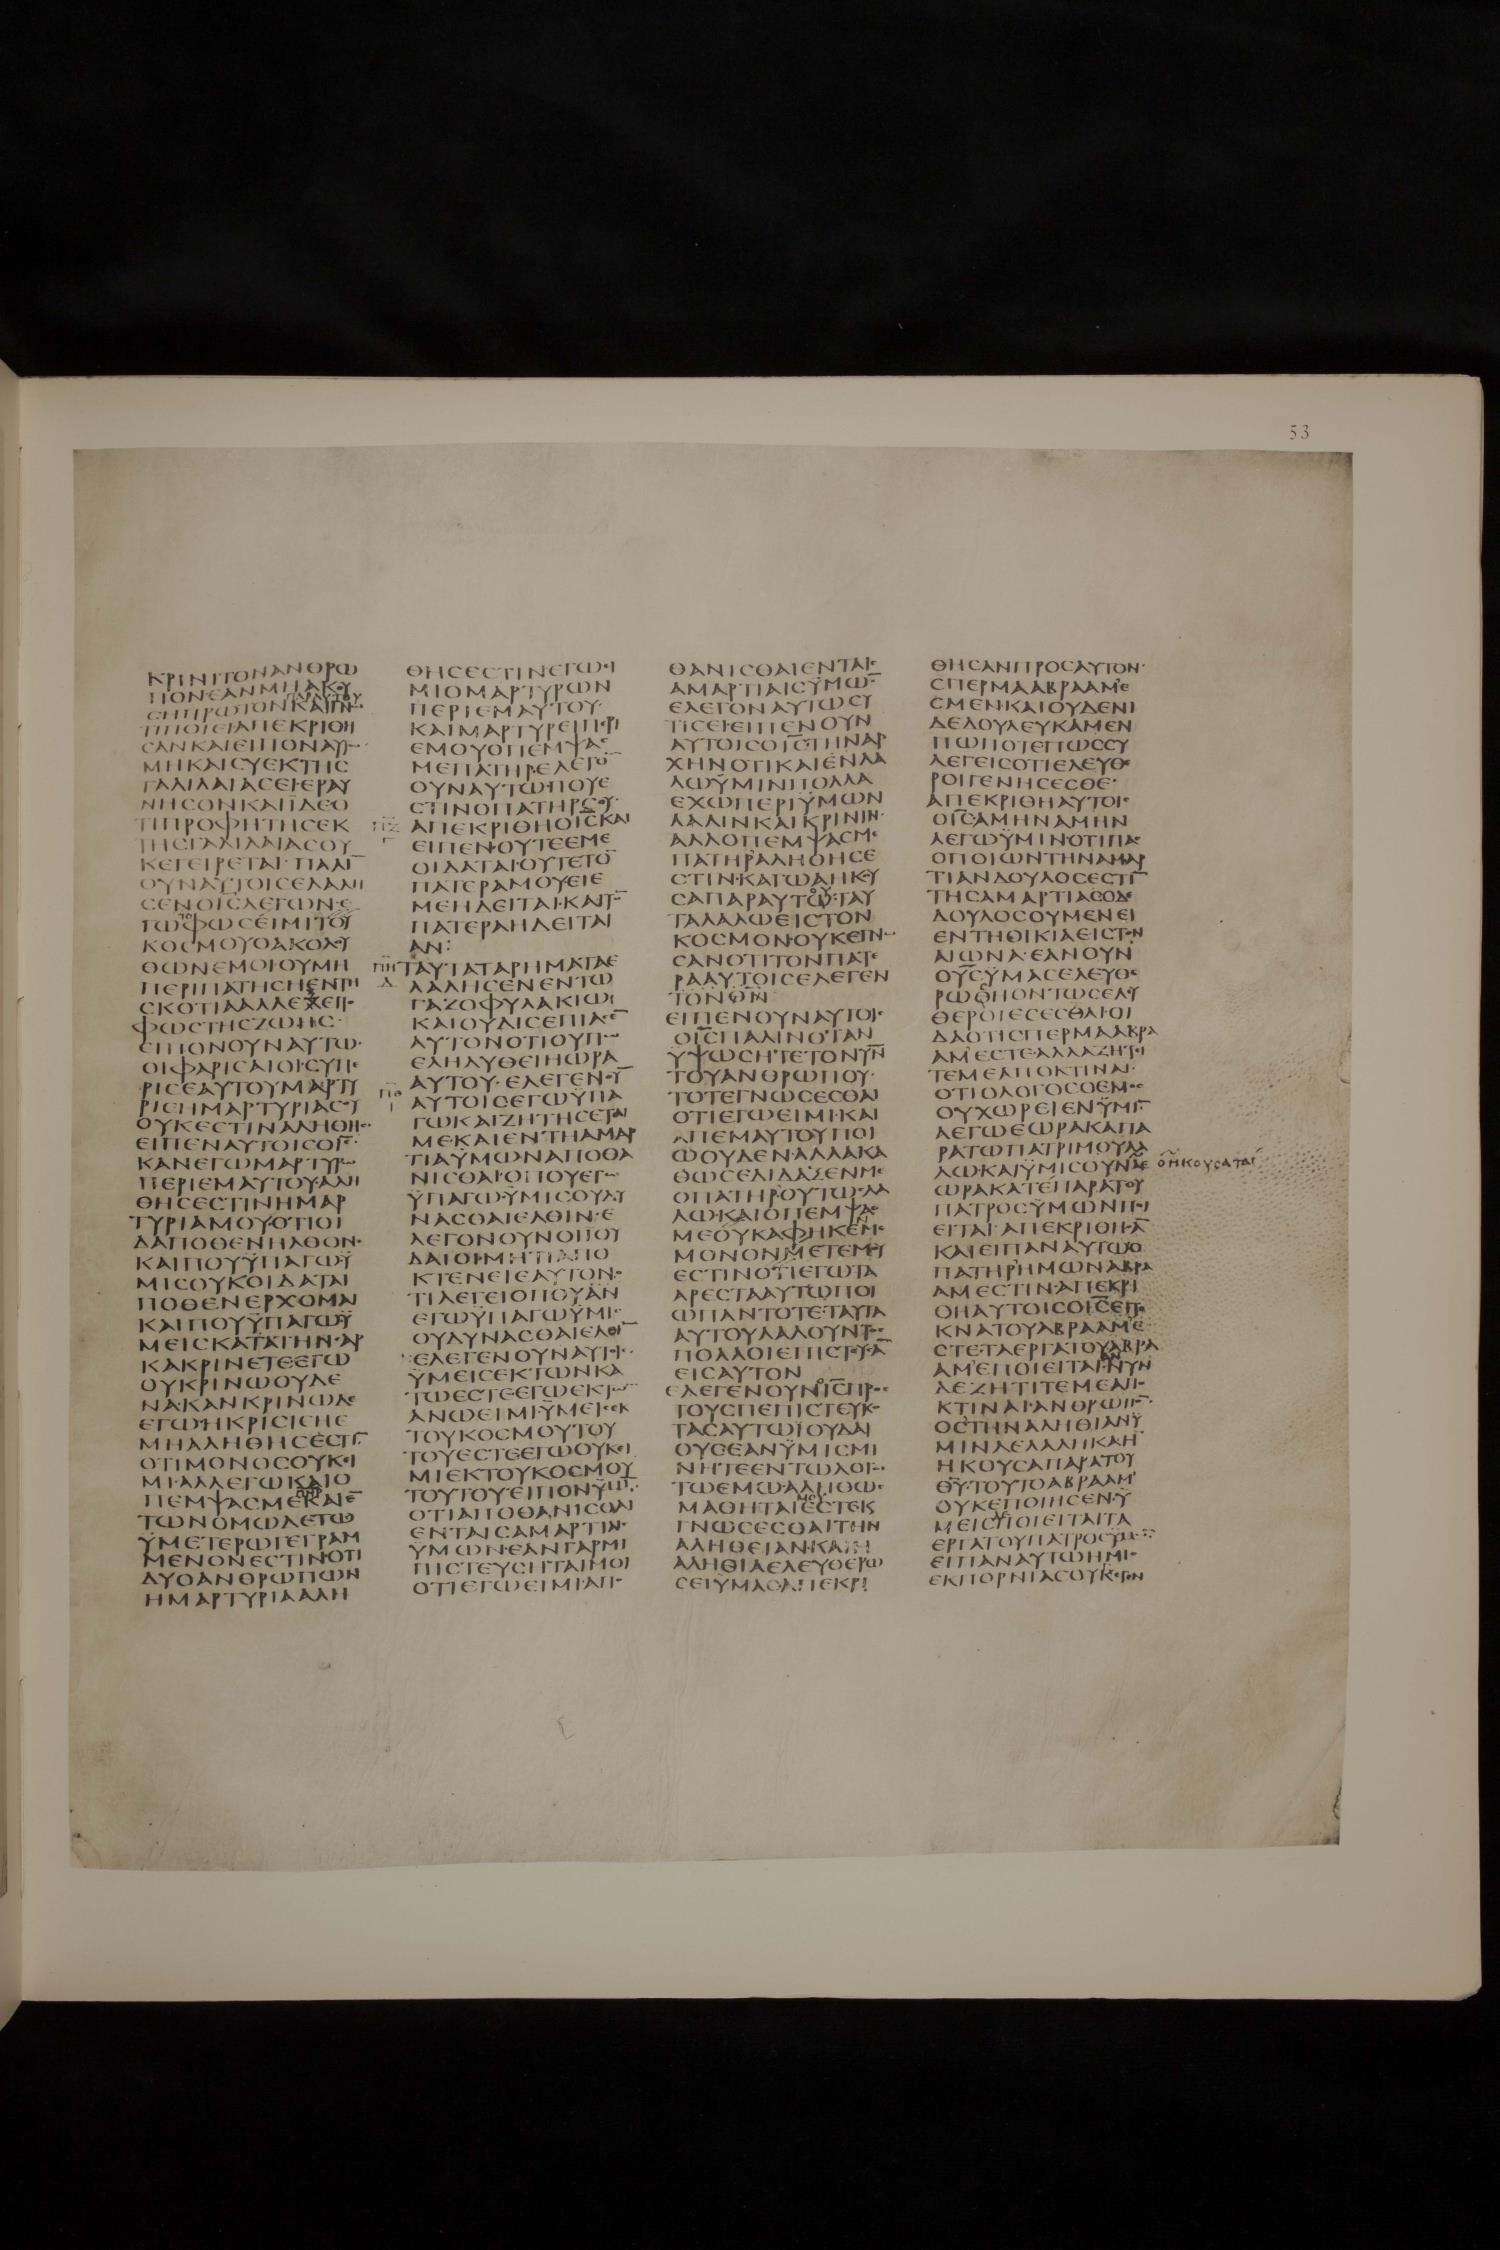 53
ΚΡΙΝΙΤΟΝΑΝΘΡΩ
ΠΟΝ·ΕΑΝΜΗΑΚΟΥ
ΣΑΝΚΑΙΕΙΠΟΝΑΥΤ
ΜΗΚΑΙϹΥΕΚΤΗϹ
ΓΑΛΙΛΑΙΑϹΕΙ·ΕΡΑΥ
ΝΗϹΟΝΚΑΙΪΔΕΟ
ΤΙΠΡΟΦΗΤΗϹΕΚ
ΤΗϹΓΑΛΙΛΑΙΑϹΟΥ
ΚΕΓΕΙΡΕΤΑΙ·ΠΑΛΙ̅
ΟΥΝΑΥΤΟΙϹΕΛΑΛΗ
ϹΕΝΟΙ̅Ϲ̅ΛΕΓΩΝ·Ε
ΚΟϹΜΟΥΟΑΚΟΛΟΥ
ΘΩΝΕΜΟΙ·ΟΥΜΗ
ΠΕΡΙΠΑΤΗϹΗΕΝΤΗ
ΦΩϹΤΗϹΖΩΗϹ·
ΕΙΠΟΝΟΥΝΑΥΤΩ·
ΟΙΦΑΡΙϹΑΙΟΙ·ϹΥΠΕ
ΡΙϹΕΑΥΤΟΥΜΑΡΤΥ
ΡΙϹΗΜΑΡΤΥΡΙΑϹΟΥ
ΟΥΚΕϹΤΙΝΑΛΗΘΗϹ
ΚΑΝΕΓΩΜΑΡΤΥΡΩ
ΠΕΡΙΕΜΑΥΤΟΥ·ΑΛΗ
ΘΗϹΕϹΤΙΝΗΜΑΡ
ΤΥΡΙΑΜΟΥ·ΟΤΙΟΙ
ΔΑΠΟΘΕΝΗΛΘΟΝ·
ΚΑΙΠΟΥΫΠΑΓΩ·Ϋ
ΜΙϹΟΥΚΟΙΔΑΤΑΙ
ΠΟΘΕΝΕΡΧΟΜΑΙ
ΚΑΙΠΟΥΫΠΑΓΩ·Ϋ
ΚΑΚΡΙΝΕΤΕ·ΕΓΩ
ΟΥΚΡΙΝΩΟΥΔΕ
ΝΑ·ΚΑΝΚΡΙΝΩΔΕ
ΕΓΩ·ΗΚΡΙϹΙϹΗΕ
ΜΗΑΛΗΘΗϹΕϹΤΙ̅
ΟΤΙΜΟΝΟϹΟΥΚΕΙ
ΜΙ·ΑΛΛΕΓΩΚΑΙΟ
ΠΕΜΨΑϹΜΕΚΑΙΕ̅
ΤΩΝΟΜΩΔΕΤΩ
ΫΜΕΤΕΡΩΓΕΓΡΑΜ
ΜΕΝΟΝΕϹΤΙΝ·ΟΤΙ
ΔΥΟΑΝΘΡΩΠΩΝ
ΗΜΑΡΤΥΡΙΑΑΛΗ
ΘΗϹΕϹΤΙΝΕΓΩΕΙ
ΜΙΟΜΑΡΤΥΡΩΝ
ΠΕΡΙΕΜΑΥΤΟΥ·
ΚΑΙΜΑΡΤΥΡΕΙΠΕΡΙ
ΕΜΟΥΟΠΕΜΨΑϹ
ΜΕΠΑΤΗΡ·ΕΛΕΓΟ̅
ΟΥΝΑΥΤΩ·ΠΟΥΕ
ϹΤΙΝΟΠΑΤΗΡϹΟΥ·
ΑΠΕΚΡΙΘΗΟΙ̅Ϲ̅ΚΑΙ
ΕΙΠΕΝ·ΟΥΤΕΕΜΕ
ΟΙΔΑΤΑΙ·ΟΥΤΕΤΟ̅
ΠΑΤΕΡΑΜΟΥ·ΕΙΕ
ΜΕΗΔΕΙΤΑΙ·ΚΑΙΤΟ̅
ΠΑΤΕΡΑΗΔΕΙΤΑΙ
ΑΝ:
ΤΑΥΤΑΤΑΡΗΜΑΤΑΕ
ΛΑΛΗϹΕΝΕΝΤΩ
ΓΑΖΟΦΥΛΑΚΙΩ
ΚΑΙΟΥΔΙϹΕΠΙΑϹΕ̅
ΑΥΤΟΝΟΤΙΟΥΠΩ
ΕΛΗΛΥΘΕΙΗΩΡΑ
ΑΥΤΟΥ·ΕΛΕΓΕΝΟΥ̅
ΑΥΤΟΙϹΕΓΩΫΠΑ
ΓΩΚΑΙΖΗΤΗϹΕΤΑΙ
ΜΕΚΑΙΕΝΤΗΑΜΑΡ
ΤΙΑΫΜΩΝΑΠΟΘΑ
ΝΙϹΘΑΙ·ΟΠΟΥΕΓΩ
ΫΠΑΓΩ·ΫΜΙϹΟΥΔΥ
ΝΑϹΘΑΙΕΛΘΙΝ·Ε
ΛΕΓΟΝΟΥΝΟΙΙΟΥ
ΔΑΙΟΙ·ΜΗΤΙΑΠΟ
ΚΤΕΝΕΙΕΑΥΤΟΝ·
ΤΙΛΕΓΕΙΟΠΟΥΑΝ
ΕΓΩΫΠΑΓΩΫΜΙϹ
ΟΥΔΥΝΑϹΘΑΙΕΛΘΙ̅
ΕΛΕΓΕΝΟΥΝΑΥΤΟΙϹ
ΫΜΕΙϹΕΚΤΩΝΚΑ
ΤΩΕϹΤΕ·ΕΓΩΕΚΤΩ̅
ΑΝΩΕΙΜΙ·ΫΜΕΙϹΕΚ
ΤΟΥΚΟϹΜΟΥΤΟΥ
ΤΟΥΕϹΤΕ·ΕΓΩΟΥΚΕΙ
ΜΙΕΚΤΟΥΚΟϹΜΟΥ
ΤΟΥΤΟΥ·ΕΙΠΟΝΫΜΙ̅
ΟΤΙΑΠΟΘΑΝΙϹΘΑΙ
ΕΝΤΑΙϹΑΜΑΡΤΙΑΙϹ
ΫΜΩΝ·ΕΑΝΓΑΡΜΙ
ΠΙϹΤΕΥϹΗΤΑΙΜΟΙ
ΟΤΙΕΓΩΕΙΜΙ·ΑΠΟ
ΘΑΝΙϹΘΑΙΕΝΤΑΙϹ
ΑΜΑΡΤΙΑΙϹΫΜΩ̅
ΕΛΕΓΟΝΑΥΤΩϹΥ
ΤΙϹΕΙ·ΕΙΠΕΝΟΥΝ
ΑΥΤΟΙϹΟΙ̅Ϲ̅ΤΗΝΑΡ
ΧΗΝΟΤΙΚΑΙΕΝΛΑ
ΛΩΫΜΙΝΠΟΛΛΑ
ΕΧΩΠΕΡΙΫΜΩΝ
ΛΑΛΙΝΚΑΙΚΡΙΝΙΝ·
ΑΛΛΟΠΕΜΨΑϹΜΕ
ΠΑΤΗΡΑΛΗΘΗϹΕ
ϹΤΙΝ·ΚΑΓΩΑΗΚΟΥ
ΤΑΛΑΛΩΕΙϹΤΟΝ
ΚΟϹΜΟΝ·ΟΥΚΕΓΝΩ
ϹΑΝΟΤΙΤΟΝΠΑΤΕ
ΡΑΑΥΤΟΙϹΕΛΕΓΕΝ
ΤΟΝΘ̅Ν̅
ΕΙΠΕΝΟΥΝΑΥΤΟΙϹ
ΟΙ̅Ϲ̅ΠΑΛΙΝΟΤΑΝ
ΫΨΩϹΗΤΕΤΟΝΥ̅Ν̅
ΤΟΥΑΝΘΡΩΠΟΥ·
ΤΟΤΕΓΝΩϹΕϹΘΑΙ
ΟΤΙΕΓΩΕΙΜΙ·ΚΑΙ
ΑΠΕΜΑΥΤΟΥΠΟΙ
ΩΟΥΔΕΝ·ΑΛΛΑΚΑ
ΘΩϹΕΔΙΔΑΞΕΝΜΕ
ΟΠΑΤΗΡ·ΟΥΤΩϹΛΑ
ΛΩ·ΚΑΙΟΠΕΜΨΑϹ
ΜΕΟΥΚΑΦΗΚΕΝΜΕ
ΜΟΝΟΝΜΕΤΕΜΟΥ
ΕϹΤΙΝΟΤΙΕΓΩΤΑ
ΑΡΕϹΤΑΑΥΤΩΠΟΙ
ΩΠΑΝΤΟΤΕ·ΤΑΥΤΑ
ΑΥΤΟΥΛΑΛΟΥΝΤΟϹ
ΠΟΛΛΟΙΕΠΙϹΤΕΥϹΑ̅
ΕΙϹΑΥΤΟΝ
ΕΛΕΓΕΝΟΥΝΟΙ̅Ϲ̅ΠΡΟϹ
ΤΟΥϹΠΕΠΙϹΤΕΥΚΟ
ΤΑϹΑΥΤΩΙΟΥΔΑΙ
ΟΥϹΕΑΝΫΜΙϹΜΙ
ΝΗΤΕΕΝΤΩΛΟΓΩ
ΤΩΕΜΩ·ΑΛΗΘΩϹ
ΜΑΘΗΤΑΙΕϹΤΕΚΑΙ
ΓΝΩϹΕϹΘΑΙΤΗΝ
ΑΛΗΘΕΙΑΝ·ΚΑΙΗ
ΑΛΗΘΙΑΕΛΕΥΘΕΡΩ
ϹΕΙΫΜΑϹ·ΑΠΕΚΡΙ
ΘΗϹΑΝΠΡΟϹΑΥΤΟΝ·
ϹΠΕΡΜΑΑΒΡΑΑΜΕ
ϹΜΕΝ·ΚΑΙΟΥΔΕΝΙ
ΔΕΔΟΥΛΕΥΚΑΜΕΝ
ΠΩΠΟΤΕΠΩϹϹΥ
ΛΕΓΕΙϹΟΤΙΕΛΕΥΘΕ
ΡΟΙΓΕΝΗϹΕϹΘΕ·
ΑΠΕΚΡΙΘΗΑΥΤΟΙϹ
ΟΙ̅Ϲ̅ΑΜΗΝΑΜΗΝ
ΛΕΓΩΫΜΙΝ·ΟΤΙΠΑϹ
ΟΠΟΙΩΝΤΗΝΑΜΑΡ
ΤΙΑΝΔΟΥΛΟϹΕϹΤΙ̅
ΤΗϹΑΜΑΡΤΙΑϹΟΔΕ
ΔΟΥΛΟϹΟΥΜΕΝΕΙ
ΕΝΤΗΟΙΚΙΑΕΙϹΤΟΝ
ΑΙΩΝΑ·ΕΑΝΟΥΝ
ΟΥ̅Ϲ̅ΫΜΑϹΕΛΕΥΘΕ
ΡΩϹΗΟΝΤΩϹΕΛΕΥ
ΘΕΡΟΙΕϹΕϹΘΑΙ·ΟΙ
ΔΑΟΤΙϹΠΕΡΜΑΑΒΡΑ
ΑΜΕϹΤΕ·ΑΛΛΑΖΗΤΕΙ
ΤΕΜΕΑΠΟΚΤΙΝΑΙ·
ΟΤΙΟΛΟΓΟϹΟΕΜΟϹ
ΟΥΧΩΡΕΙΕΝΫΜΙ̅
ΛΕΓΩΕΩΡΑΚΑΠΑ
ΡΑΤΩΠΑΤΡΙΜΟΥΛΑ
ΩΡΑΚΑΤΕΠΑΡΑΤΟΥ
ΠΑΤΡΟϹΫΜΩΝΠΟΙ
ΕΙΤΑΙ·ΑΠΕΚΡΙΘΗϹΑ̅
ΚΑΙΕΙΠΑΝΑΥΤΩΟ
ΠΑΤΗΡΗΜΩΝΑΒΡΑ
ΑΜΕϹΤΙΝ·ΑΠΕΚΡΙ
ΚΝΑΤΟΥΑΒΡΑΑΜΕ
ϹΤΕΤΑΕΡΓΑΤΟΥΑΒΡΑ
ΑΜΕΠΟΙΕΙΤΑΙ·ΝΥΝ
ΔΕΖΗΤΙΤΕΜΕΑΠΟ
ΚΤΙΝΑΙ·ΑΝΘΡΩΠΟ̅
ΟϹΤΗΝΑΛΗΘΙΑΝΫ
ΜΙΝΛΕΛΑΛΗΚΑΗ
ΗΚΟΥϹΑΠΑΡΑΤΟΥ
Θ̅Υ̅·ΤΟΥΤΟΑΒΡΑΑΜ
ΟΥΚΕΠΟΙΗϹΕΝ·Ϋ
ΜΕΙϹΠΟΙΕΙΤΑΙΤΑ
ΕΡΓΑΤΟΥΠΑΤΡΟϹΫΜΩ̅
ΕΙΠΑΝΑΥΤΩΗΜΙϹ
ΕΚΠΟΡΝΙΑϹΟΥΚΕΓΕΝ